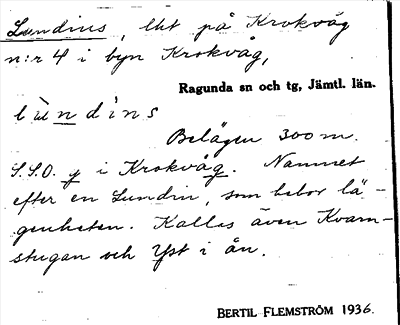 Lundius, lht på Krokvåg
n:r 4 i byn Krokvåg,
Ragunda sn och tg, Jämtl. län.
lùndìns
Belägen 300 m.
S.S.O. y i Krokvåg. Namnet
efter en Lundin, som bebor lä-
genheten. Kallas även Kvarn-
stugan och Yst i ån.
BERTIL FLEMSTRÖM 1936.